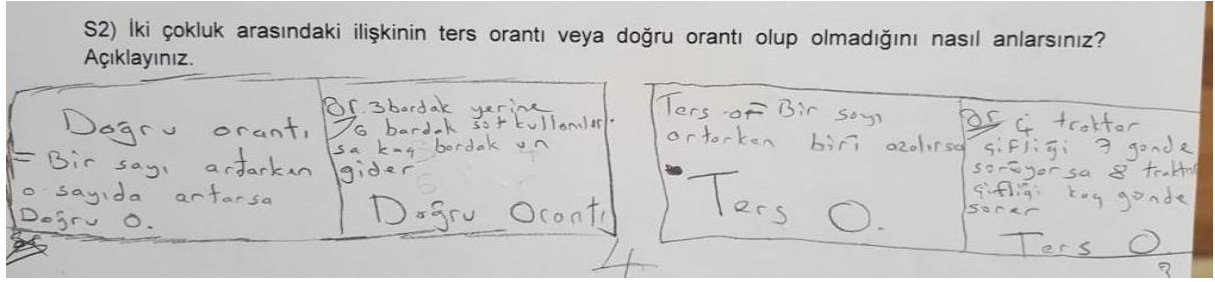 S2) İki çokluk arasındaki ilişkinin ters orantı veya doğru orantı olup olmadığını nasıl anlarsınız?
Açıklayınız.
Doğru orantı
= Bir sayı artarken
o sayıda artarsa
Doğru O.
Ör. 3 bardak yerine
6 bardak süt kullanılır-
sa kaç bardak un
gider
Doğru Orantı
Ters or Bir sayı
artarken biri azalırsa
Ters O.
Ör 4 traktor
çifliği 7 günde
sürüyorsa 8 traktör
çifliği kaç günde
sürer
Ters O
4